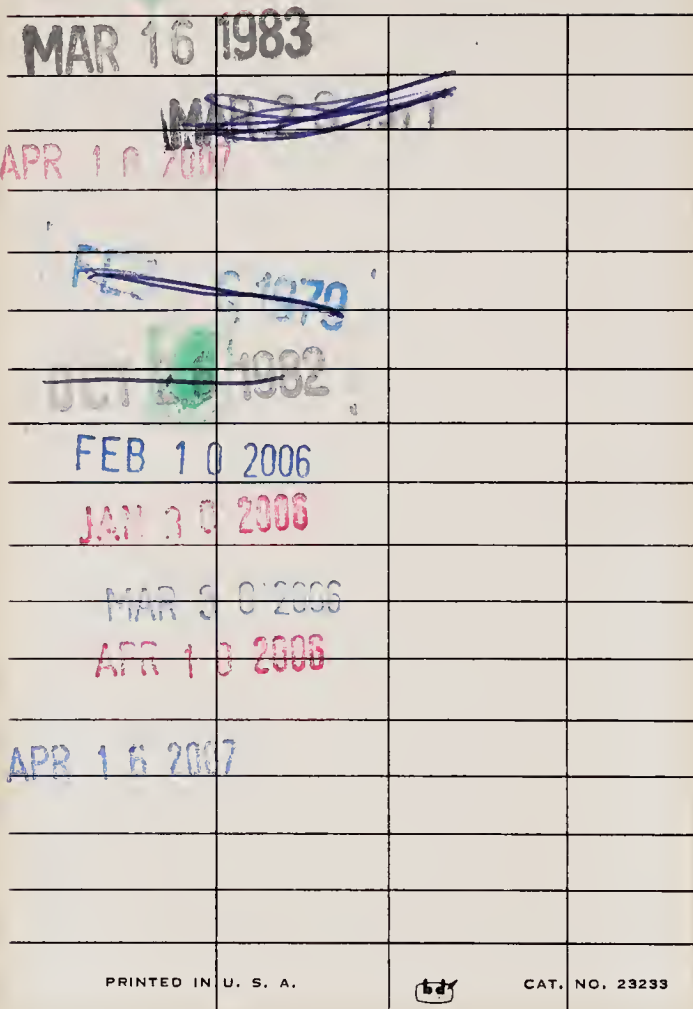 MAR 16 1983
MAR 2
APR 10 2007
FEB 1979
OCT 1982
FEB 10 2006
JAN 30 2006
MAR 30 2006
APR 18 2006
APR 16 2007
PRINTED IN U. S. A. bd CAT. NO. 23233